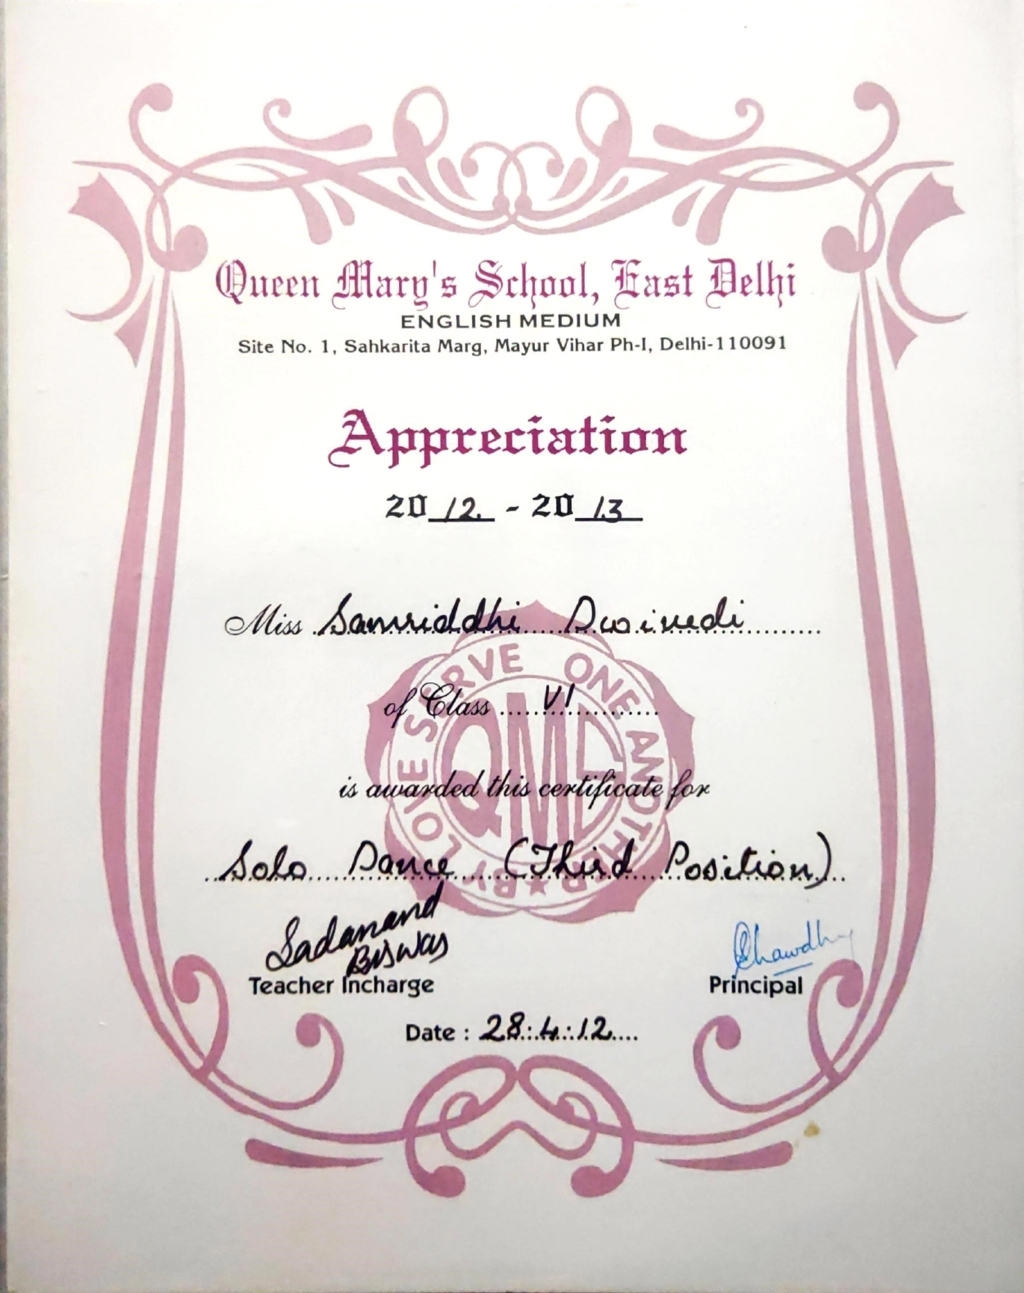 Queen Mary's School, East Delhi
ENGLISH MEDIUM
Site No. 1, Sahkarita Marg, Mayur Vihar Ph-I, Delhi-110091
Appreciation
2012. - 2013
Miss Samriddhi Dwivedi
of Class VI
is awarded this certificate for
Solo Dance (Third Position)
BY LOVE SERVE ONE ANOTHER
QMS
Sadanand
Biswas
Teacher Incharge
Principal
Date : 28.4.12